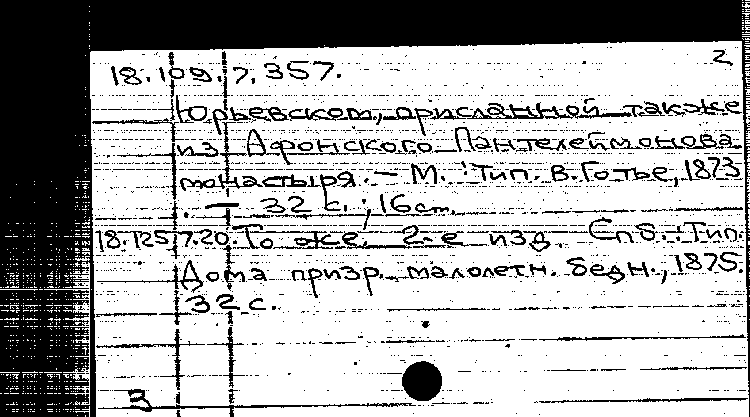 2
18.109.7.357.
Юрьевском, присланной также
из Афонского Пантелеймонова
монастыря. — М. : Тип. В. Готье, 1873
. — 32 с. ; 16 cm.
18.125.7.20. То же. 2-е изд. Спб. : Тип.
Дома призр. малолетн. бедн., 1875.
32 с.
3